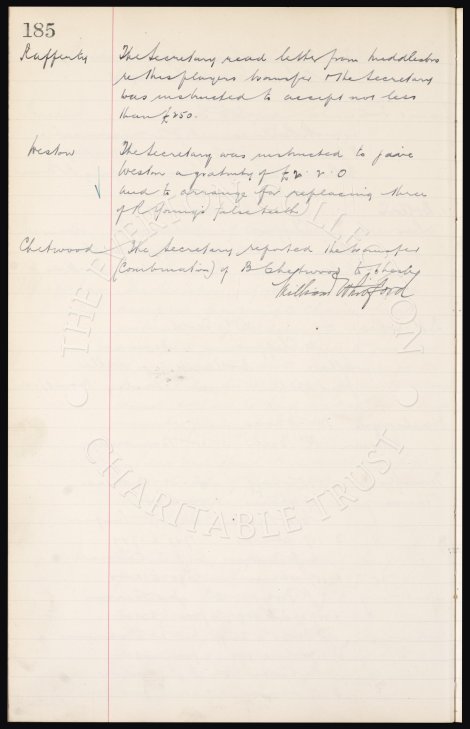 185
Rafferty The Secretary read letter from Middlesbro
re this players transfer & the Secretary
was instructed to accept not less
than £250.
Weston The Secretary was instructed to give
Weston a gratuity of £2.2.0
and to arrange for replacing three
of R Young's false teeth
Chetwood The Secretary reported the transfer
(Combination) of B Chetwood to
William
THE EVERTON COLLECTION
CHARITABLE TRUST